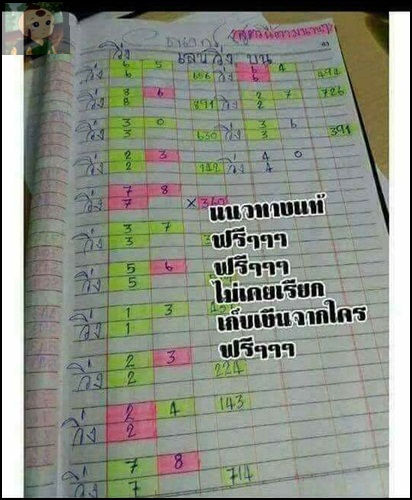 เลขวิ่ง บน
วิ่ง 6 5 656 วิ่ง 6 4 494
6 6
วิ่ง 8 6 891 วิ่ง 2 7 726
8 2
วิ่ง 3 0 630 วิ่ง 3 6 391
3 3
วิ่ง 2 3 วิ่ง 4 0
2
วิ่ง 7 8 × 360
7
แนวทางแห่
วิ่ง 3 7
3
ฟรีๆๆๆ
ฟรีๆๆๆ
วิ่ง 5 6
5
ไม่เคยเรียก
วิ่ง 1 3
1
เก็บเงินจากใคร
ฟรีๆๆๆ
วิ่ง 2 3 224
2
วิ่ง 2 4 143
2
วิ่ง 7 8 714
7